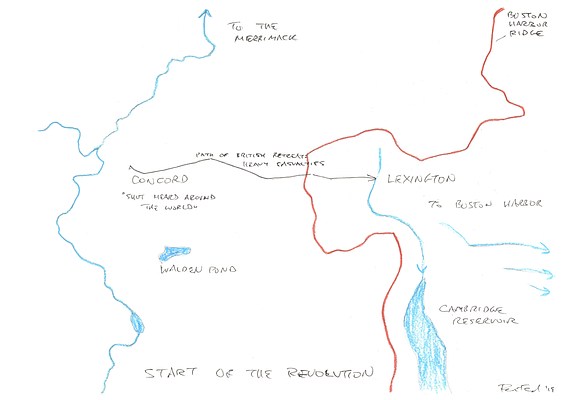 TO THE
MERRIMACK
BOSTON
HARBOR
RIDGE
PATH OF BRITISH RETREAT
HEAVY CASUALTIES
CONCORD
"SHOT HEARD AROUND
THE WORLD"
LEXINGTON
TO BOSTON HARBOR
WALDEN POND
CAMBRIDGE
RESERVOIR
START OF THE REVOLUTION